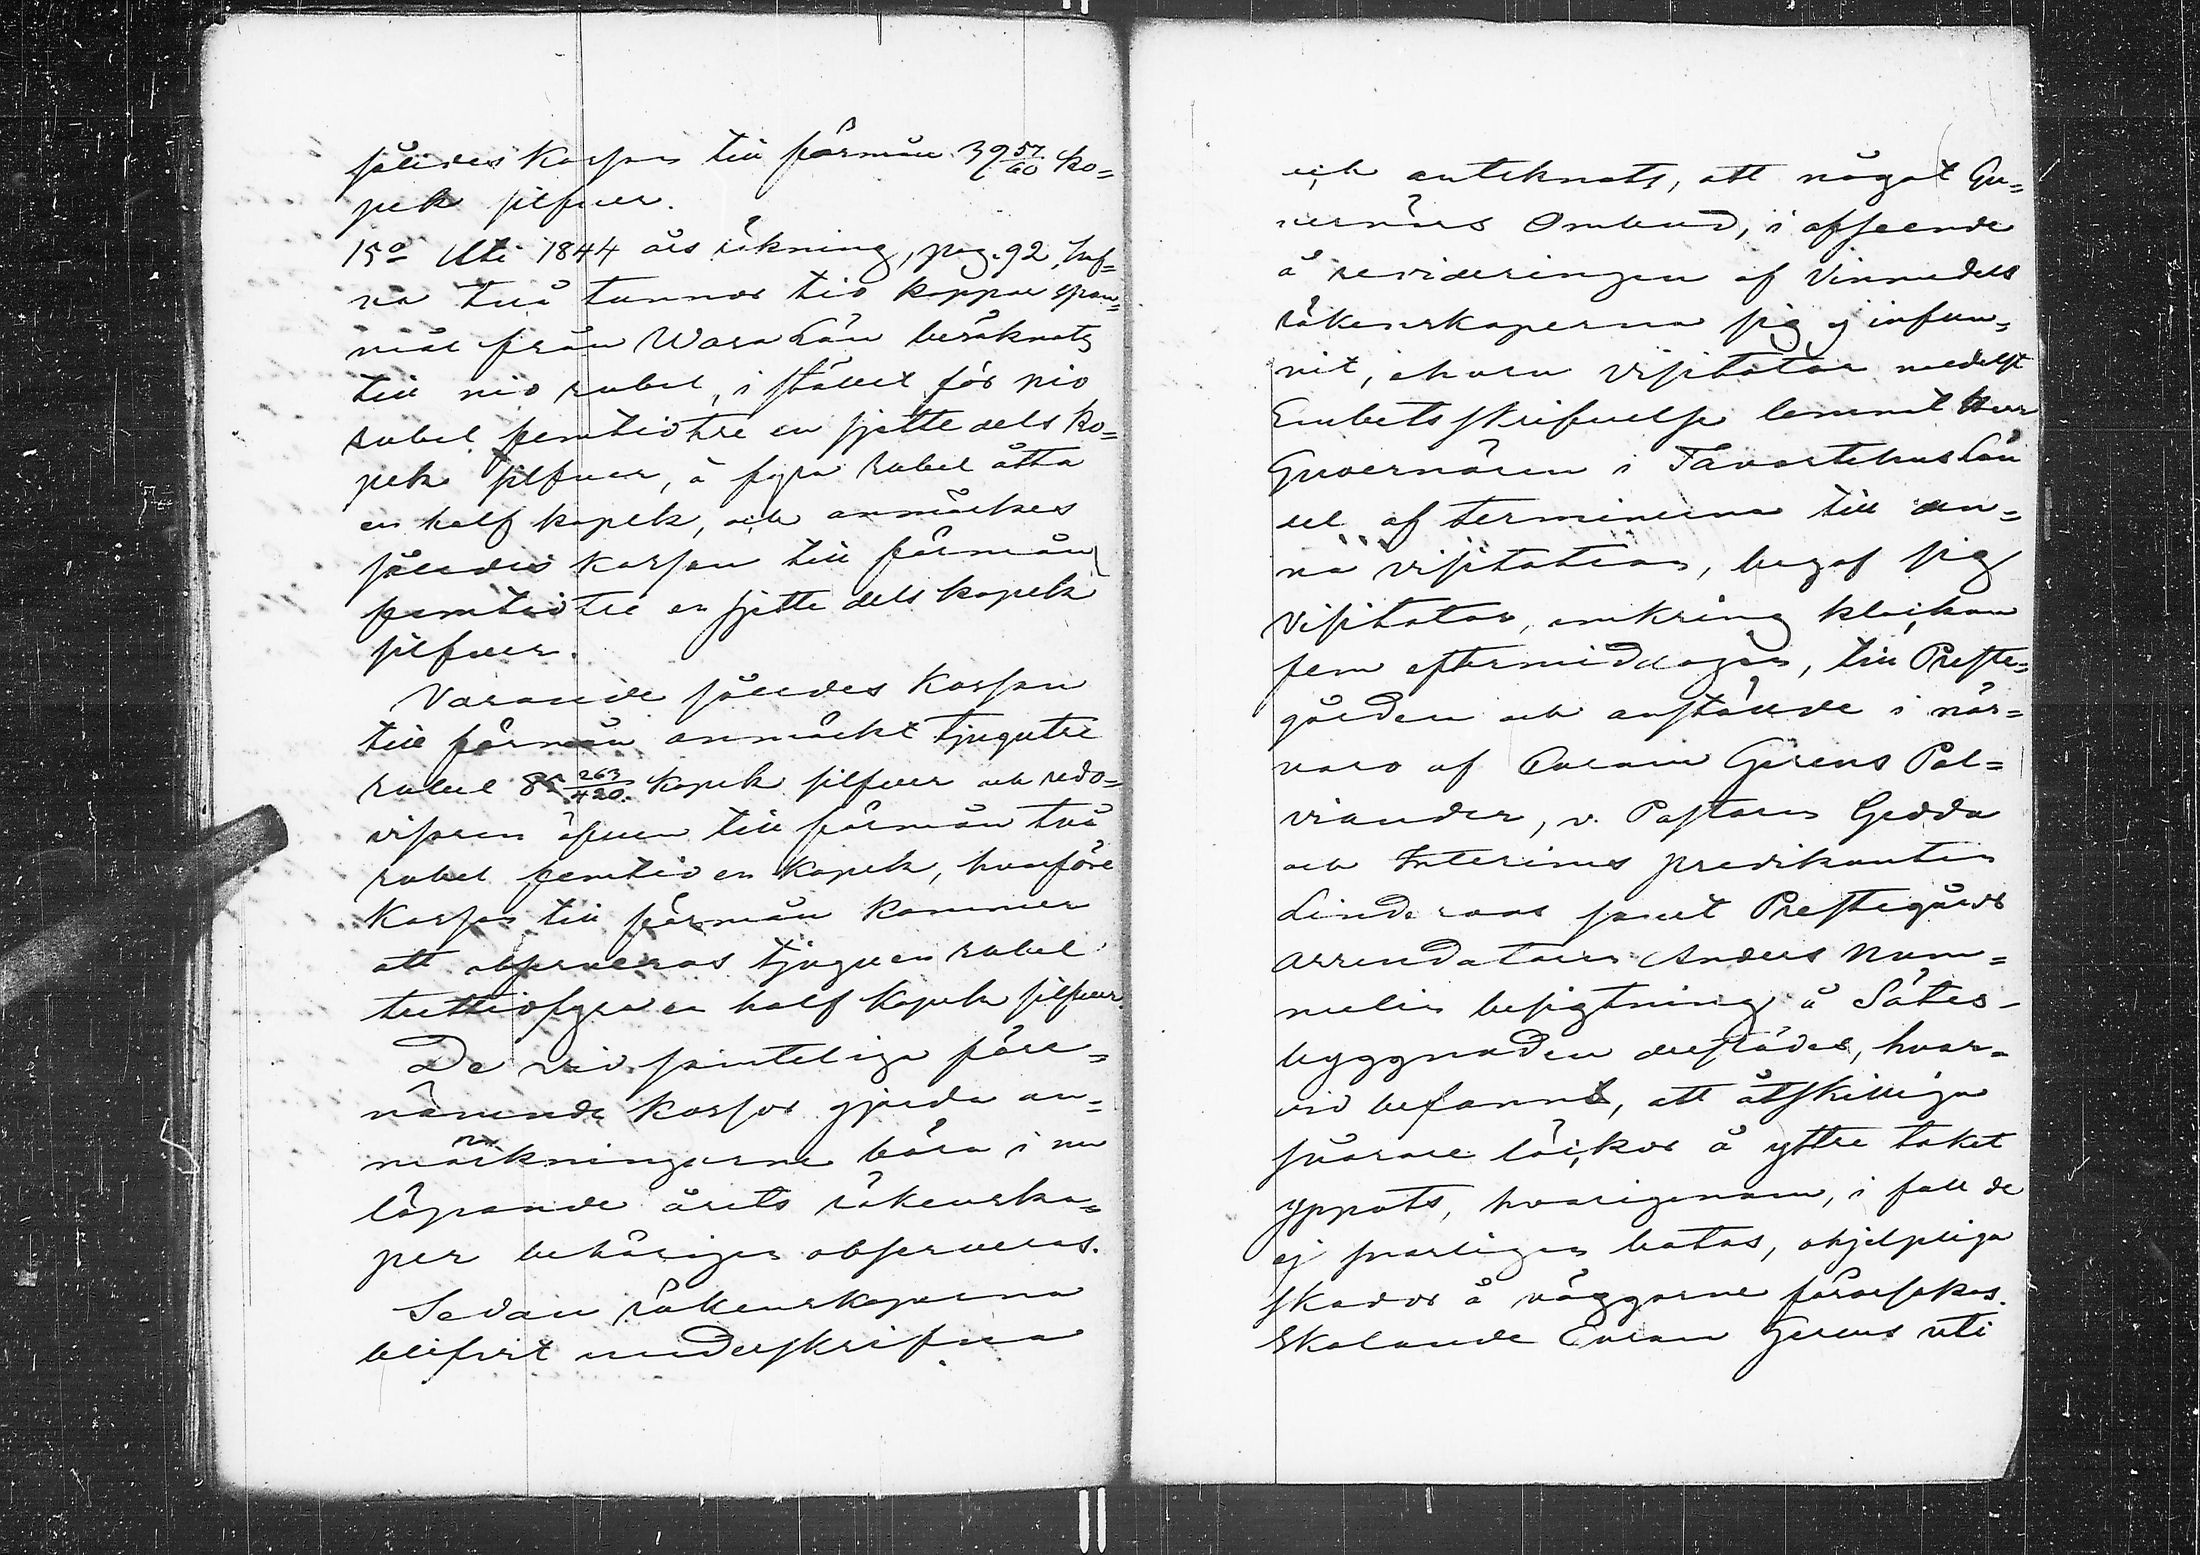 således Kassan till förmån 39 57/60 ko=
pek silfver.
15o Uti 1844 års räkning, pag. 92, haf=
va två tunnor tio kappar span=
mål från Wara Län beräknats
till nio rubel, i stället för nio
rubel femtiotre en sjette dels ko=
pek silfver, à fyra rubel åtta
en half kopek, och anmärkes
således Kassan till förmån
femtiotre en sjette dels kopek
silfver.
Varande således Kassan
till förmån anmärkt tjugutre
rubel 85 263/420 kopek silfver och redo=
visaren äfven till förmån två
rubel femtio en kopek, hvarföre
Kassan till förmån kommer
att observeras tjuguen rubel
trettiofyra en half kopek silfver.
De vid samteliga före=
nämnde kassor gjorda an=
märkningarne böra i nu
löpande årets räkenska=
per behörigen observeras.
Sedan räkenskaperna
blifvit underskrifna
och anteknats, att något Gu=
vernörs Ombud, i afseende
å revideringen af Vinmedels
räkenskaperna sig ej infun=
nit, ehuru Visitator medelst
Embetsskrifvelse lemnat Herr
Guvernören i Tavastehus Län
del af terminerna till den=
na visitation, begaf sig
Visitator, omkring klockan
fem eftermiddagen, till Preste=
gården och anställde i när=
varo af Curam Gerens Pal=
viander, v. Pastorn Gedda
och Interims predikanten
Linderoos samt Prestegårds
arrendatorn Anders Num=
melin besigtning å Sätes-
byggnaden derstädes, hvar=
vid befanns, att åtskilliga
svårare läckor å yttre taket
yppats, hvarigenom, i fall de
ej snarligen botas, ohjelpliga
skador å väggarne förorsakas.
Skolande Curam Gerens uti